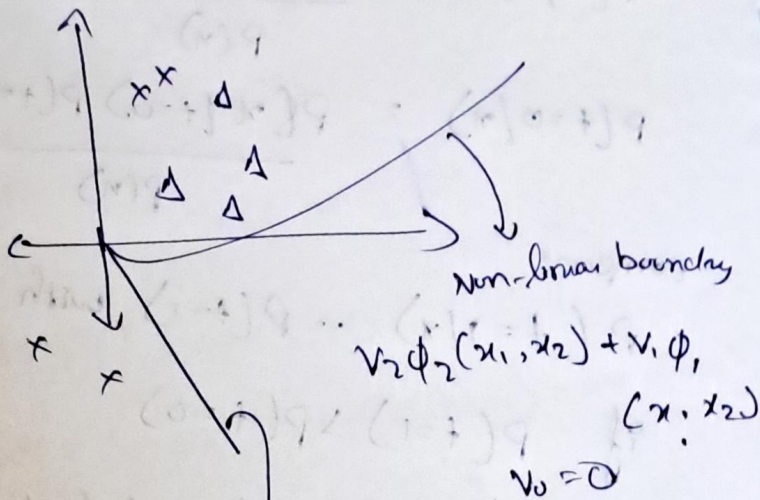 x x Δ
Δ Δ
Δ
x
x
Non-linear boundry
V₂φ₂(x₁,x₂) + V₁φ₁
(x₁ x₂)
V₀ = 0